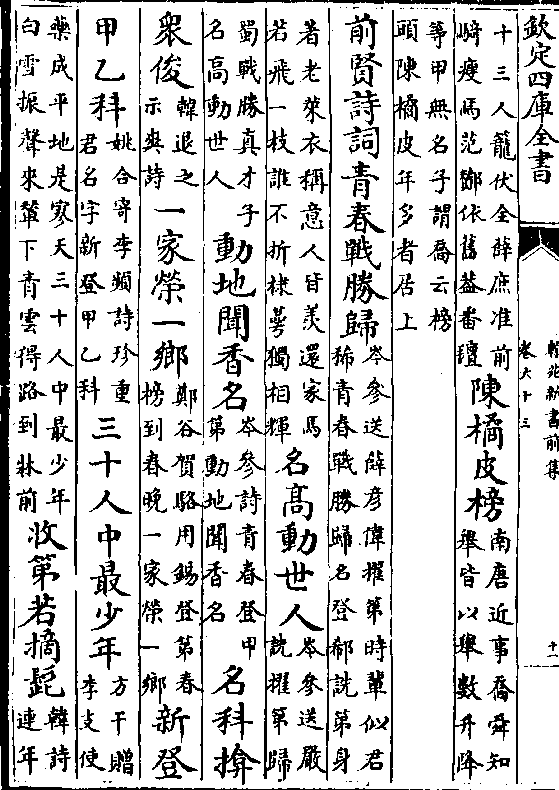 欽定四庫全書
翰苑新書前集
卷六十三
十一
十三人籠伏全薛庶准前
騎瘦馬范鄧依舊蓋番氊
陳橘皮榜
南唐近事喬舜知
舉皆以舉數升降
等甲無名子謂喬云榜
頭陳橘皮年多者居上
前賢詩詞青春戰勝歸
岑參送薛彦偉擢第時輩似君
稀青春戰勝歸名登郗詵第身
著老萊衣稱意人皆羡還家馬
若飛一枝誰不折棣萼獨相輝
名高動世人
岑參送嚴
詵擢第歸
蜀戰勝真才子
名高動世人
動地聞香名
岑參詩青春登甲
第動地聞香名
名科揜
衆俊
韓退之
示爽詩
一家榮一鄉
鄭谷賀駱用錫登第春
榜到春晩一家榮一鄉
新登
甲乙科
姚合寄李頻詩珍重
君名字新登甲乙科
三十人中最少年
方干贈
李支使
藥成平地是寥天三十人中最少年
白雪振聲來輦下青雲得路到牀前
收第若摘髭
韓詩
連年